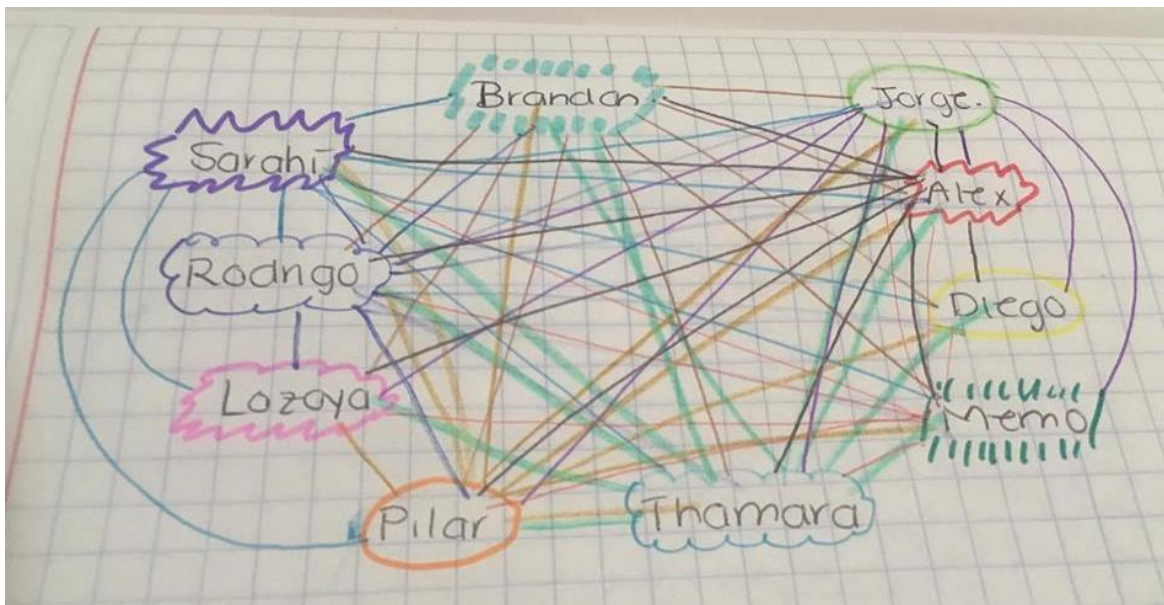 Brandon
Jorge.
Sarahi
Alex
Rodrigo
Diego
Lozoya
Memo
Pilar
Thamara